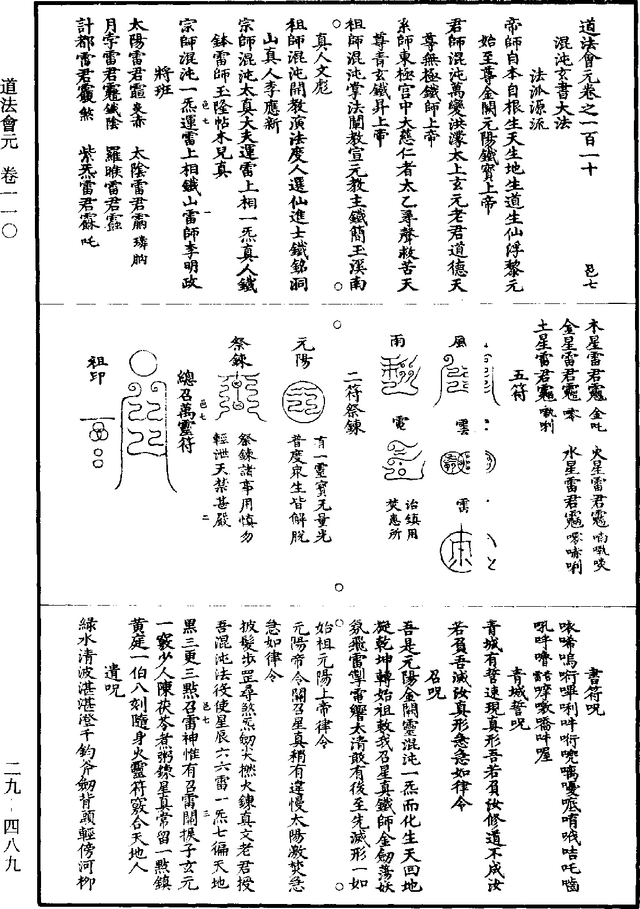 道法會元卷之一百一十
混沌玄書大法
法派源流
帝師自本自根生天生地生道生仙浮黎元
始至尊金闕元陽鐵寶上帝
君師混沌萬變洪濛太上玄元老君道德天
尊無極鐵師上帝
系師東極宮中大慈仁者太乙尋聲救苦天
尊青玄鐵昇上帝
祖師混沌掌法闡教宣元教主鐵簡玉溪南
真人文彪
祖師混沌開教演法度人選仙進士鐵銘洞
山真人李應新
宗師混沌太真大夫運雷上相一炁真人鐵
鉢雷師玉隆帖木兒真
宗師混沌一炁運雷上相鐵山雷師李明政
將班
太陽雷君 炎赤 太陰雷君
月孛雷君 鐵陰 羅睺雷君
計都雷君 煞 紫炁雷君 吒
木星雷君 金吒 火星雷君
金星雷君 水星雷君
土星雷君
五符
風 雲 雷
雨 電 治鎮用
焚惠所
二符祭鍊
元陽 有一靈寶无量光
普度眾生皆解脫
祭鍊 祭鍊諸事用慎勿
輕泄天禁甚嚴
總召萬靈符
祖印
書符呪
青城誓呪
青城有誓速現真形吾若負汝修道不成汝
若負吾滅汝真形急急如律令
召呪
吾是元陽金闕靈混沌一炁而化生天回地
旋乾坤轉始祖敕我召星真鐵師金劍蕩妖
氛飛雷掣電響太清敢有後至先滅形一如
始祖元陽上帝律令
元陽帝令闕召星真稍有違慢太陽激焚急
急如律令
披髮步罡尋煞炁劍尖撚火鍊真文老君授
吾混沌法役使星辰六六雷一炁七徧天地
黑三更三點召雷神惟有召雷關捩子玄元
一竅少人陳茯苓煮粥鍊星真常留一點鎮
黃庭一伯八刻隨身火靈符竅合天地人
遣呪
綠水清波湛湛澄千鈞斧劍背頭輕傍河柳
道法會元 卷一一〇
二九－四八九